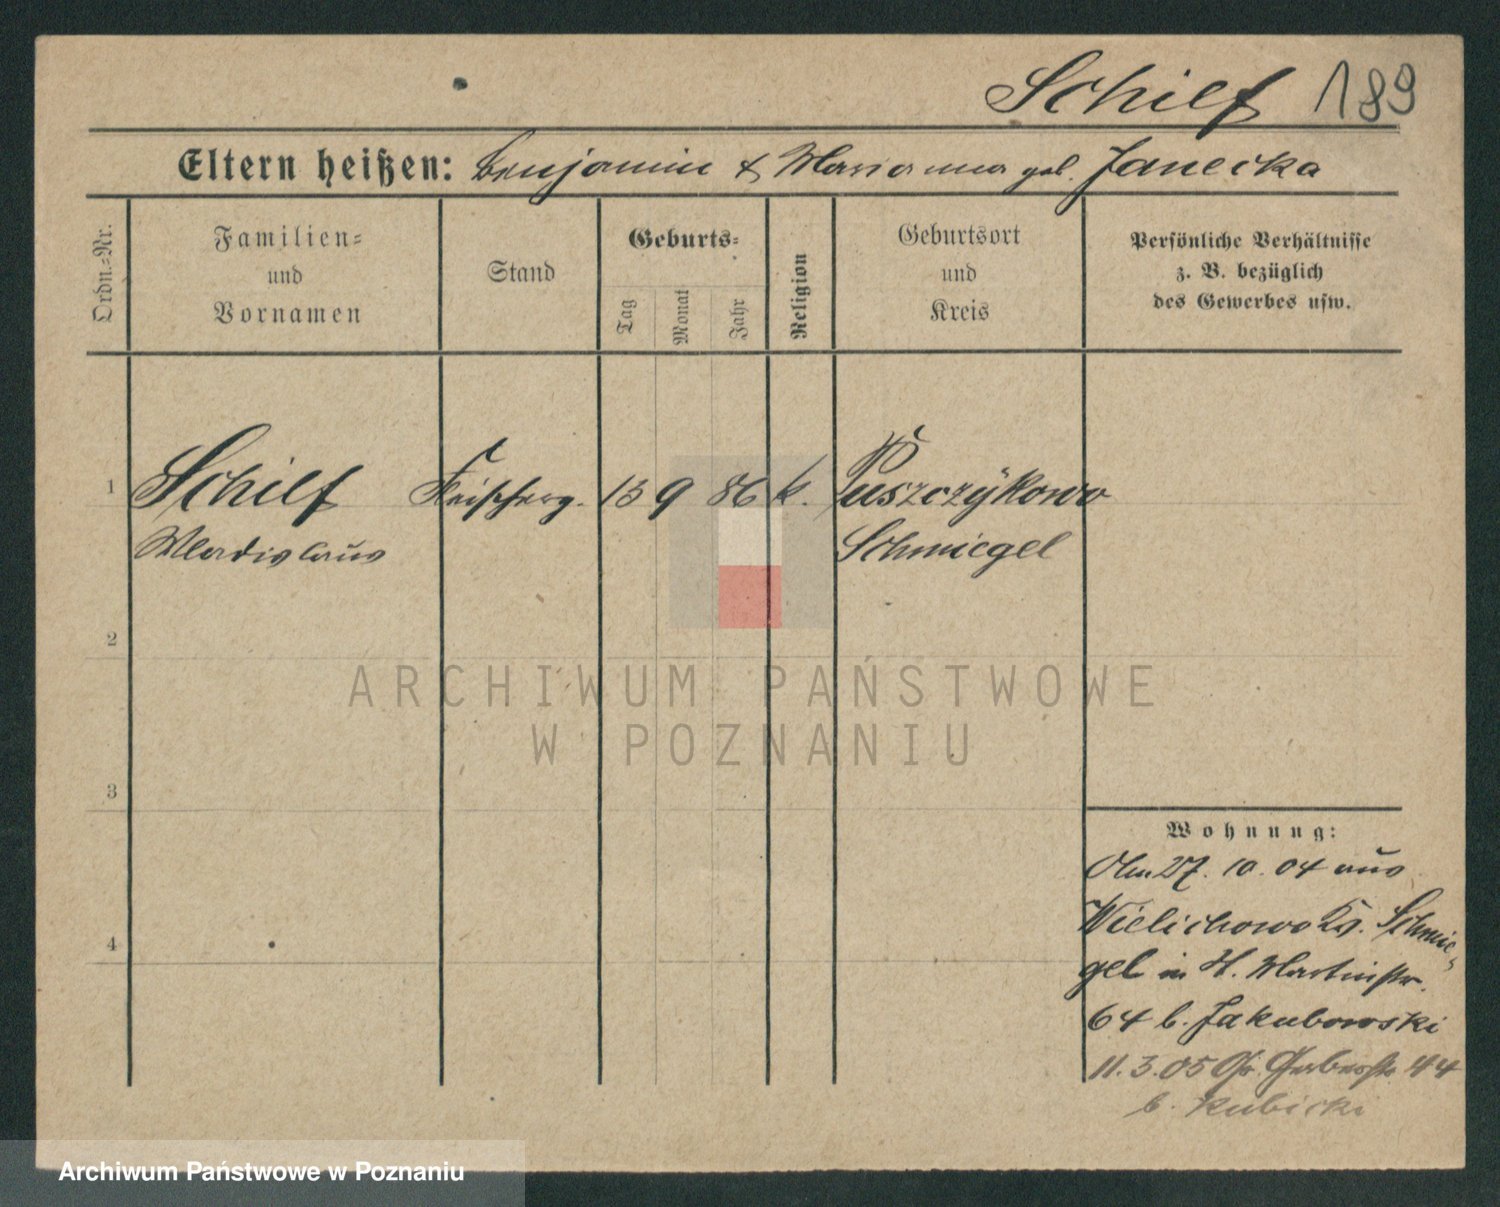 Schilf 189
Eltern heißen: Benjamin & Marianna geb. Janecka
Ordn.=Nr.
Familien=
und
Vornamen
Stand
Geburts=
Tag
Monat
Jahr
Religion
Geburtsort
und
Kreis
Persönliche Verhältnisse
z. B. bezüglich
des Gewerbes usw.
1 Schilf 13 9 86 k. Puszczykowo
Wladislaus Schmiegel
2
3
4
Wohnung:
Am 27. 10. 04 aus
Wielichowo Kr. Schmie-
gel in St. Martinstr.
64 b. Jakubowski
11. 3. 05 Gr. Gerberstr. 44
b. Kubicki
ARCHIWUM PAŃSTWOWE
W POZNANIU
Archiwum Państwowe w Poznaniu